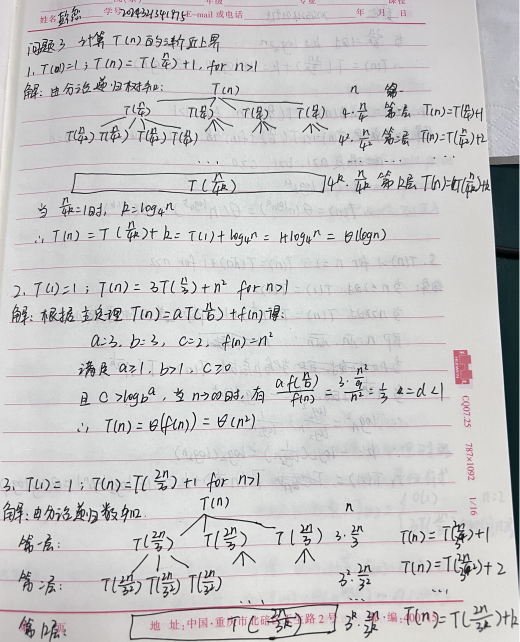 姓名 彭 学号 2024321341975 E-mail或电话 年 月 日
问题3 计算T(n)的渐近上界
1. T(1)=1; T(n)=T(n/4)+1, for n>1
解: 由分治递归树知: T(n) n 第一
T(n/4) T(n/4) T(n/4) T(n/4) 4·n/4 第一层 T(n)=T(n/4)+1
T(n/4²) T(n/4²) T(n/4²) T(n/4²) 4²·n/4² 第二层 T(n)=T(n/4²)+2
... ... ...
T(n/4^k) 4^k·n/4^k 第k层 T(n)=T(n/4^k)+k
当 n/4^k=1时, k=log₄n
∴ T(n)=T(n/4^k)+k=T(1)+log₄n=1+log₄n=θ(logn)
2. T(1)=1; T(n)=3T(n/3)+n² for n>1
解: 根据主定理 T(n)=aT(n/b)+f(n)得:
a=3, b=3, c=2, f(n)=n²
满足 a≥1, b>1, c>0
且 c>log_b a, 当n→∞时, 有 af(n/b)/f(n) = 3·n²/9/n² = 1/3 =d<1
∴ T(n)=θ(f(n))=θ(n²)
3. T(1)=1; T(n)=T(2n/3)+1 for n>1
解: 由分治递归数知 T(n) n
第一层: T(2n/3) T(2n/3) T(2n/3) 3·2n/3 T(n)=T(2n/3)+1
第二层: T(2n/3²) T(2n/3²) T(2n/3²) 3²·2n/3² T(n)=T(2n/3²)+2
... ... ...
第k层: T(2n/3^k) 3^k·2n/3^k T(n)=T(2n/3^k)+k
地 址:中国·重庆市北碚 路2号 编:400715
CQ07.25 787×1092 1/16